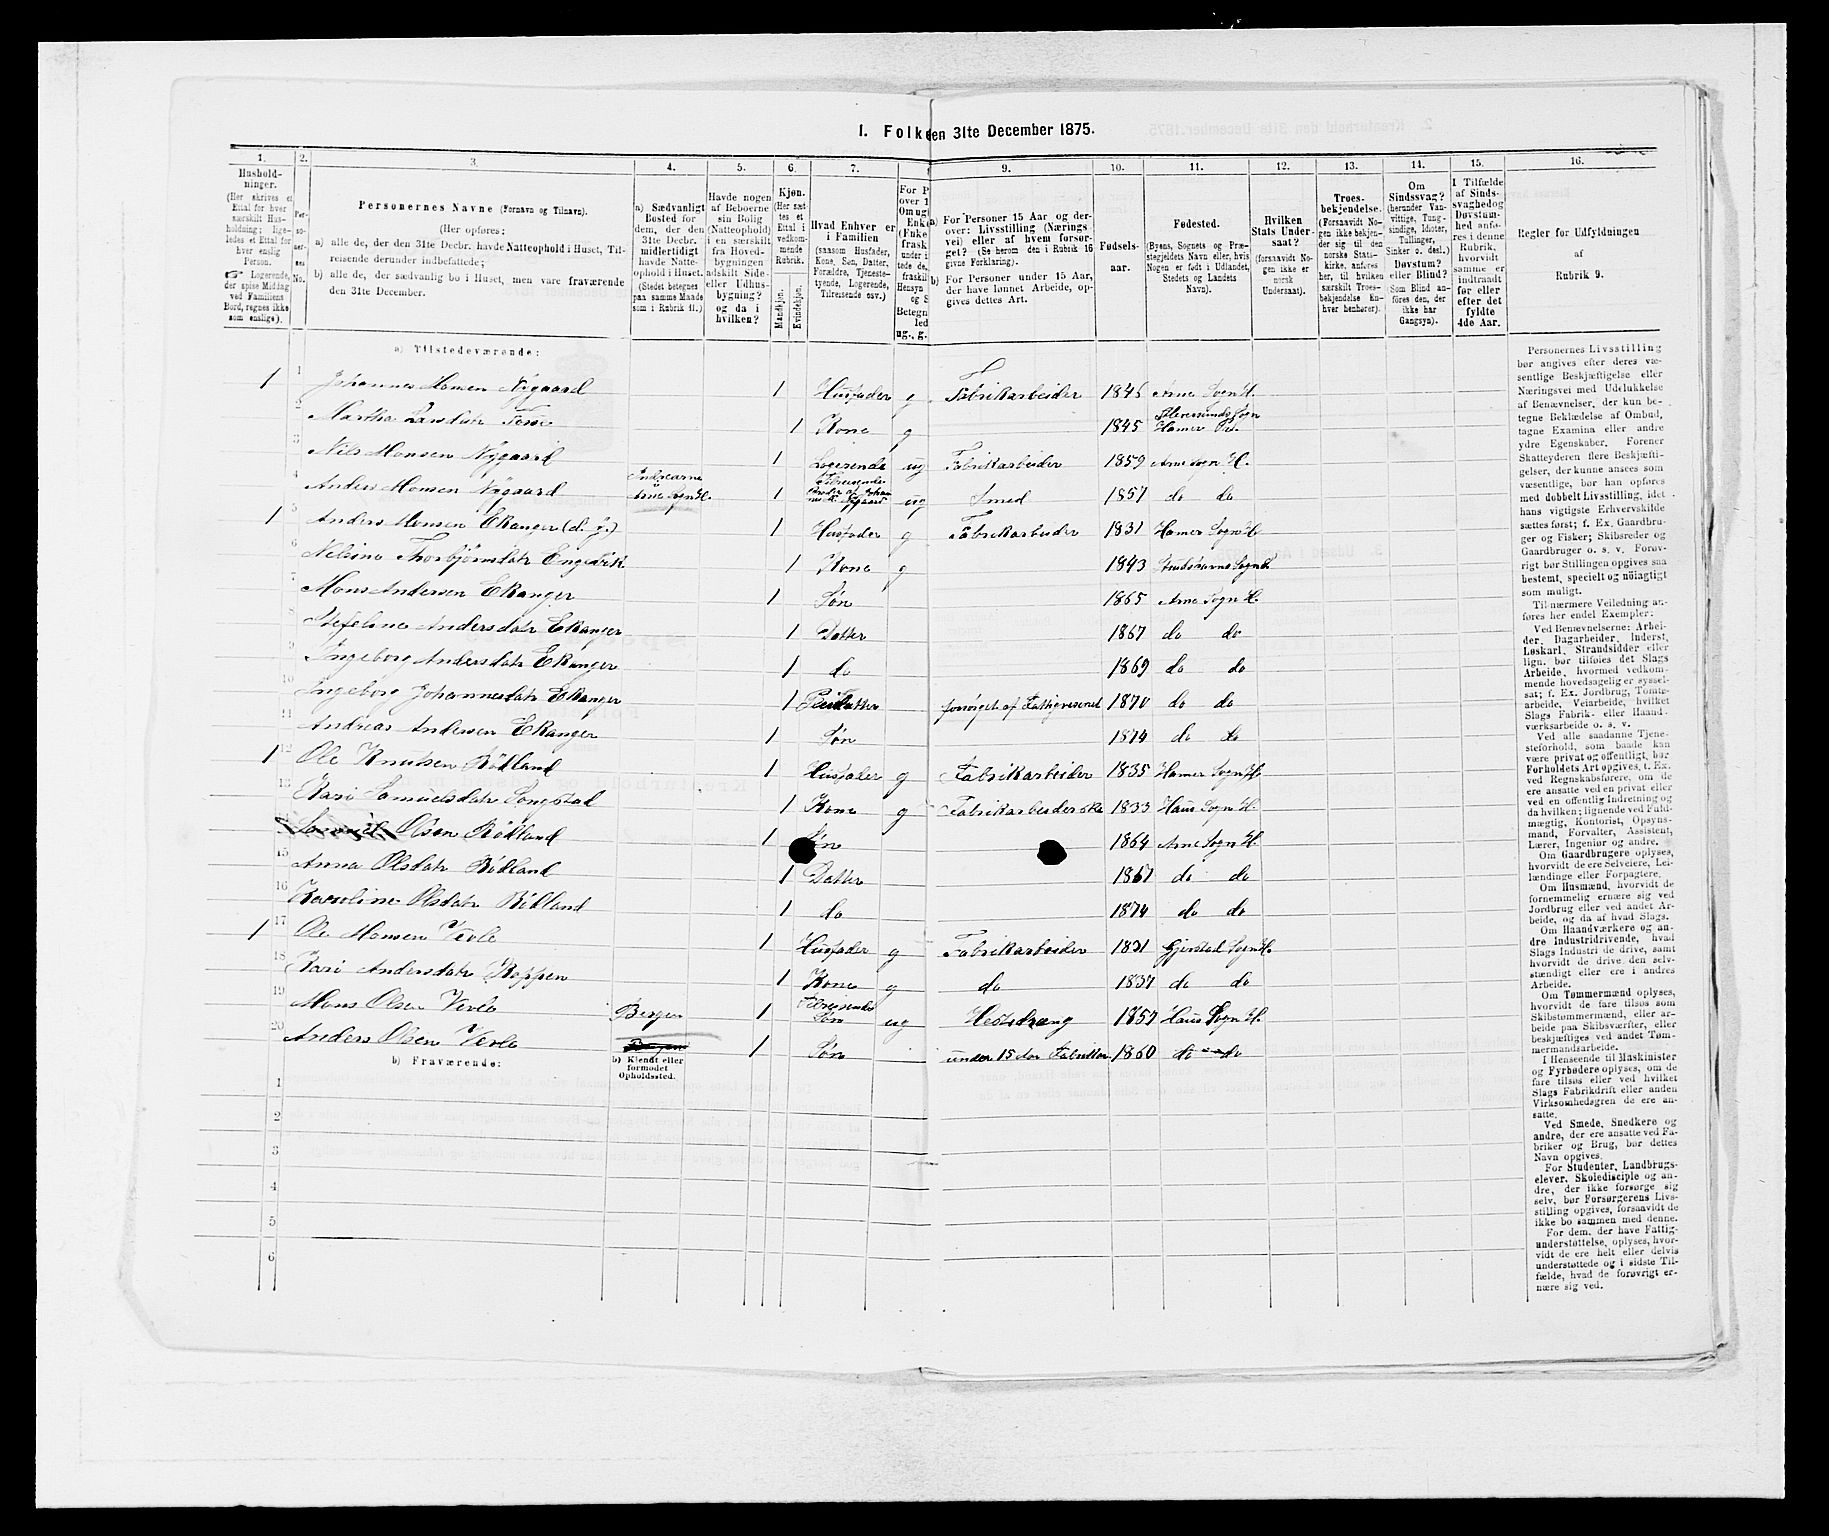 1. Folke en 31te December 1875.
1. 2. 3. 4. 5. 6. 7. 9. 10. 11. 12. 13. 14. 15. 16.
Hushold-
ninger.
(Her skrives et
Ettal for hver
særskilt Hus-
holdning; lige-
ledes et Ettal for
hver enslig
Person.
☛ Logerende,
der spise Middag
ved Familiens
Bord, regnes ikke
som enslige).
Per-
so-
ner-
nes
No.
Personernes Navne (Fornavn og Tilnavn).
(Her opføres:
a) alle de, der den 31te Decbr. havde Natteophold i Huset, Til-
reisende derunder indbefattede;
b) alle de, der sædvanlig bo i Huset, men vare fraværende
den 31te December.
a) Sædvanligt
Bosted for
dem, der den
31te Decbr.
midlertidigt
havde Natte-
ophold i Huset.
(Stedet betegnes
paa samme Maade
som i Rubrik 11.)
Havde nogen
af Beboerne
sin Bolig
(Natteophold)
i en særskilt
fra Hoved-
bygningen
adskilt Side-
eller Udhus-
bygning?
og da i
hvilken?
Kjøn.
(Her sæt-
tes et
Ettal i
vedkom-
mende
Rubrik.
Mandkjøn.
Kvindekjøn.
Hvad Enhver er
i Familien
(saasom Husfader,
Kone, Søn, Datter,
Forældre, Tjeneste-
tyende, Logerende,
Tilreisende osv.)
For P
over 1
Om ug
Enk
(Enke
frask
under i
tede de,
fraskil
Hensyn
og S
Betegn
led
ug., g.
a)
For Personer 15 Aar og der-
over: Livsstilling (Nærings
vei) eller af hvem forsør-
get? (Se herom den i Rubrik 16
givne Forklaring).
b)
For Personer under 15 Aar,
der have lønnet Arbeide, op-
gives dettes Art.
Fødsels-
aar.
Fødested.
(Byens, Sognets og Præ-
stegjeldets Navn eller, hvis
Nogen er født i Udlandet,
Stedets og Landets
Navn).
Hvilken
Stats Under-
saat?
(forsaavidt No-
gen ikke er
norsk
Undersaat).
Troes-
bekjendelse.
(Forsaavidt No-
gen ikke bekjen-
der sig til den
norske Stats-
kirke, anføres
her, til hvilken
særskilt Troes-
bekjendelse En-
hver henhører).
Om
Sindssvag?
(herunder Van-
vittige, Tung-
sindige, Idioter,
Tullinger,
Sinker o. desl.)
Døvstum?
eller Blind?
(Som Blind an-
føres den, der
ikke har
Gangsyn).
I Tilfælde
af Sinds-
svaghed og
Døvstum-
hed anfø-
res i denne
Rubrik,
hvorvidt
samme er
indtraadt
før eller
efter det
fyldte
4de Aar.
Regler for Udfyldningen
af
Rubrik 9.
a) Tilstedeværende:
1 1 Johannes Monsen Nygaard 1 Husfader g Fabrikarbeider 1845 Arne Sogn H.
2 Martha Tosse 1 Kone g 1845 Hamer Pr.
3 Nils Monsen Nygaard 1 Logerende ug Fabrikarbeider 1859 Arne Sogn H.
4 Anders Monsen Nygaard Indrearne Arne Sogn H. 1 Tilreisende ug Smed 1857 do do
1 5 Anders Monsen Ekanger (d. y.) 1 Husfader g Fabrikarbeider 1831 Hamer Sogn H
6 Nelsine Thorbjørnsdatr 1 Kone g 1843
7 Mons Andersen Ekanger 1 Søn 1865 Arne Sogn H.
8 Stefeline Andersdatr Ekanger 1 Datter 1867 do do
9 Ingeborg Andersdatr Ekanger 1 do 1869 do do
10 Ingeborg Johannesdatr Ekanger 1 Pleiedatter forsørget af Fattigvæsenet 1870 do do
11 Andreas Andersen Ekanger 1 Søn 1874 do do
1 12 Ole Knutsen Rødland 1 Husfader g Fabrikarbeider 1835 Hamer Sogn H
13 Kari Samuelsdatr Songstad 1 Kone g Fabrikarbeiderske 1833 Haus Sogn H.
Samuel Olsen Rødland 1 Søn 1864 Arne Sogn H.
15 Anna Olsdatr Rødland 1 Datter 1867 do do
16 Karoline Olsdatr Rødland 1 do 1874 do do
1 17 Ole Monsen Verle 1 Husfader g Fabrikarbeider 1831 Gjerstad Sogn H.
18 Kari Andersdatr Koppen 1 Kone g do 1837 do do
19 Mons Olsen Verle Bergen 1 Tilreisende Søn ug Hestedreng 1857 Haus Sogn H.
20 Anders Olsen Verle Bergen 1 Søn under 15 Aar 1860 do do
b) Fraværende:
b) Kjendt eller
formodet
Opholdssted.
1
2
3
4
5
6
Personernes Livsstilling
bør angives efter deres væ-
sentlige Beskjæftigelse eller
Næringsvei med Udelukkelse
af Benævnelser, der kun be-
tegne Beklædelse af Ombud,
tagne Examina eller andre
ydre Egenskaber. Forener
Skatteyderen flere Beskjæfti-
gelser, der kunne ansees som
væsentlige, bør han opføres
med dobbelt Livsstilling, idet
hans vigtigste Erhvervskilde
sættes først; f. Ex. Gaardbru-
ger og Fisker; Skibsreder og
Gaardbruger o. s. v. Forøv-
rigt bør Stillingen opgives saa
bestemt, specielt og nöiagtigt
som muligt.
Til nærmere Veiledning an-
føres her endel Exempler:
Ved Benævnelserne: Arbei-
der, Dagarbeider, Inderst,
Løskarl, Strandsidder eller
lign. bør tilføies det Slags
Arbeide, hvormed vedkom-
mende hovedsagelig er syssel-
sat; f. Ex. Jordbrug, Tomte-
arbeide, Veiarbeide, hvilket
Slags Fabrik- eller Haand-
værksarbeide o. s. v.
Ved alle saadanne Tjene-
steforhold, som baade kan
være privat og offentlig, bør
Forholdets Art opgives, t. Ex.
ved Regnskabsførere, om de
ere ansatte ved en privat eller
ved en offentlig Indretning og
da hvilken; lignende ved Fuld-
mægtig, Kontorist, Opsyns-
mand, Forvalter, Assistent,
Lærer, Ingeniør og andre.
Om Gaardbrugere oplyses,
hvorvidt de ere Selveiere, Lei-
lændinge eller Forpagtere.
Om Husmænd, hvorvidt de
fornemmelig ernære sig ved
Jordbrug eller ved andet Ar-
beide, og da af hvad Slags.
Om Haandværkere og an-
dre Industridrivende, hvad
Slags Industri de drive, samt
hvorvidt de drive den selv-
stændigt eller ere i andres
Arbeide.
Om Tømmermænd oplyses,
hvorvidt de fare tilsøs som
Skibstømmermænd, eller ar-
beide paa Skibsværfter, eller
beskjæftiges ved andet Tøm-
mermandsarbeide.
I Henseende til Maskinister
og Fyrbødere oplyses, om de
fare tilsøs eller ved hvilket
Slags Fabrikdrift eller anden
Virksomhedsgren de ere an-
satte.
Ved Smede, Snedkere og
andre, der ere ansatte ved Fa-
briker og Brug, bør dettes
Navn opgives.
For Studenter, Landbrugs-
elever, Skoledisciple og an-
dre, der ikke forsørge sig
selv, bør Forsørgerens Livs-
stilling opgives, forsaavidt de
ikke bo sammen med denne.
For dem, der have Fattig-
understøttelse, oplyses, hvor-
vidt de ere helt eller delvis
understøttede og i sidste Til-
fælde, hvad de forøvrigt er-
nære sig ved.